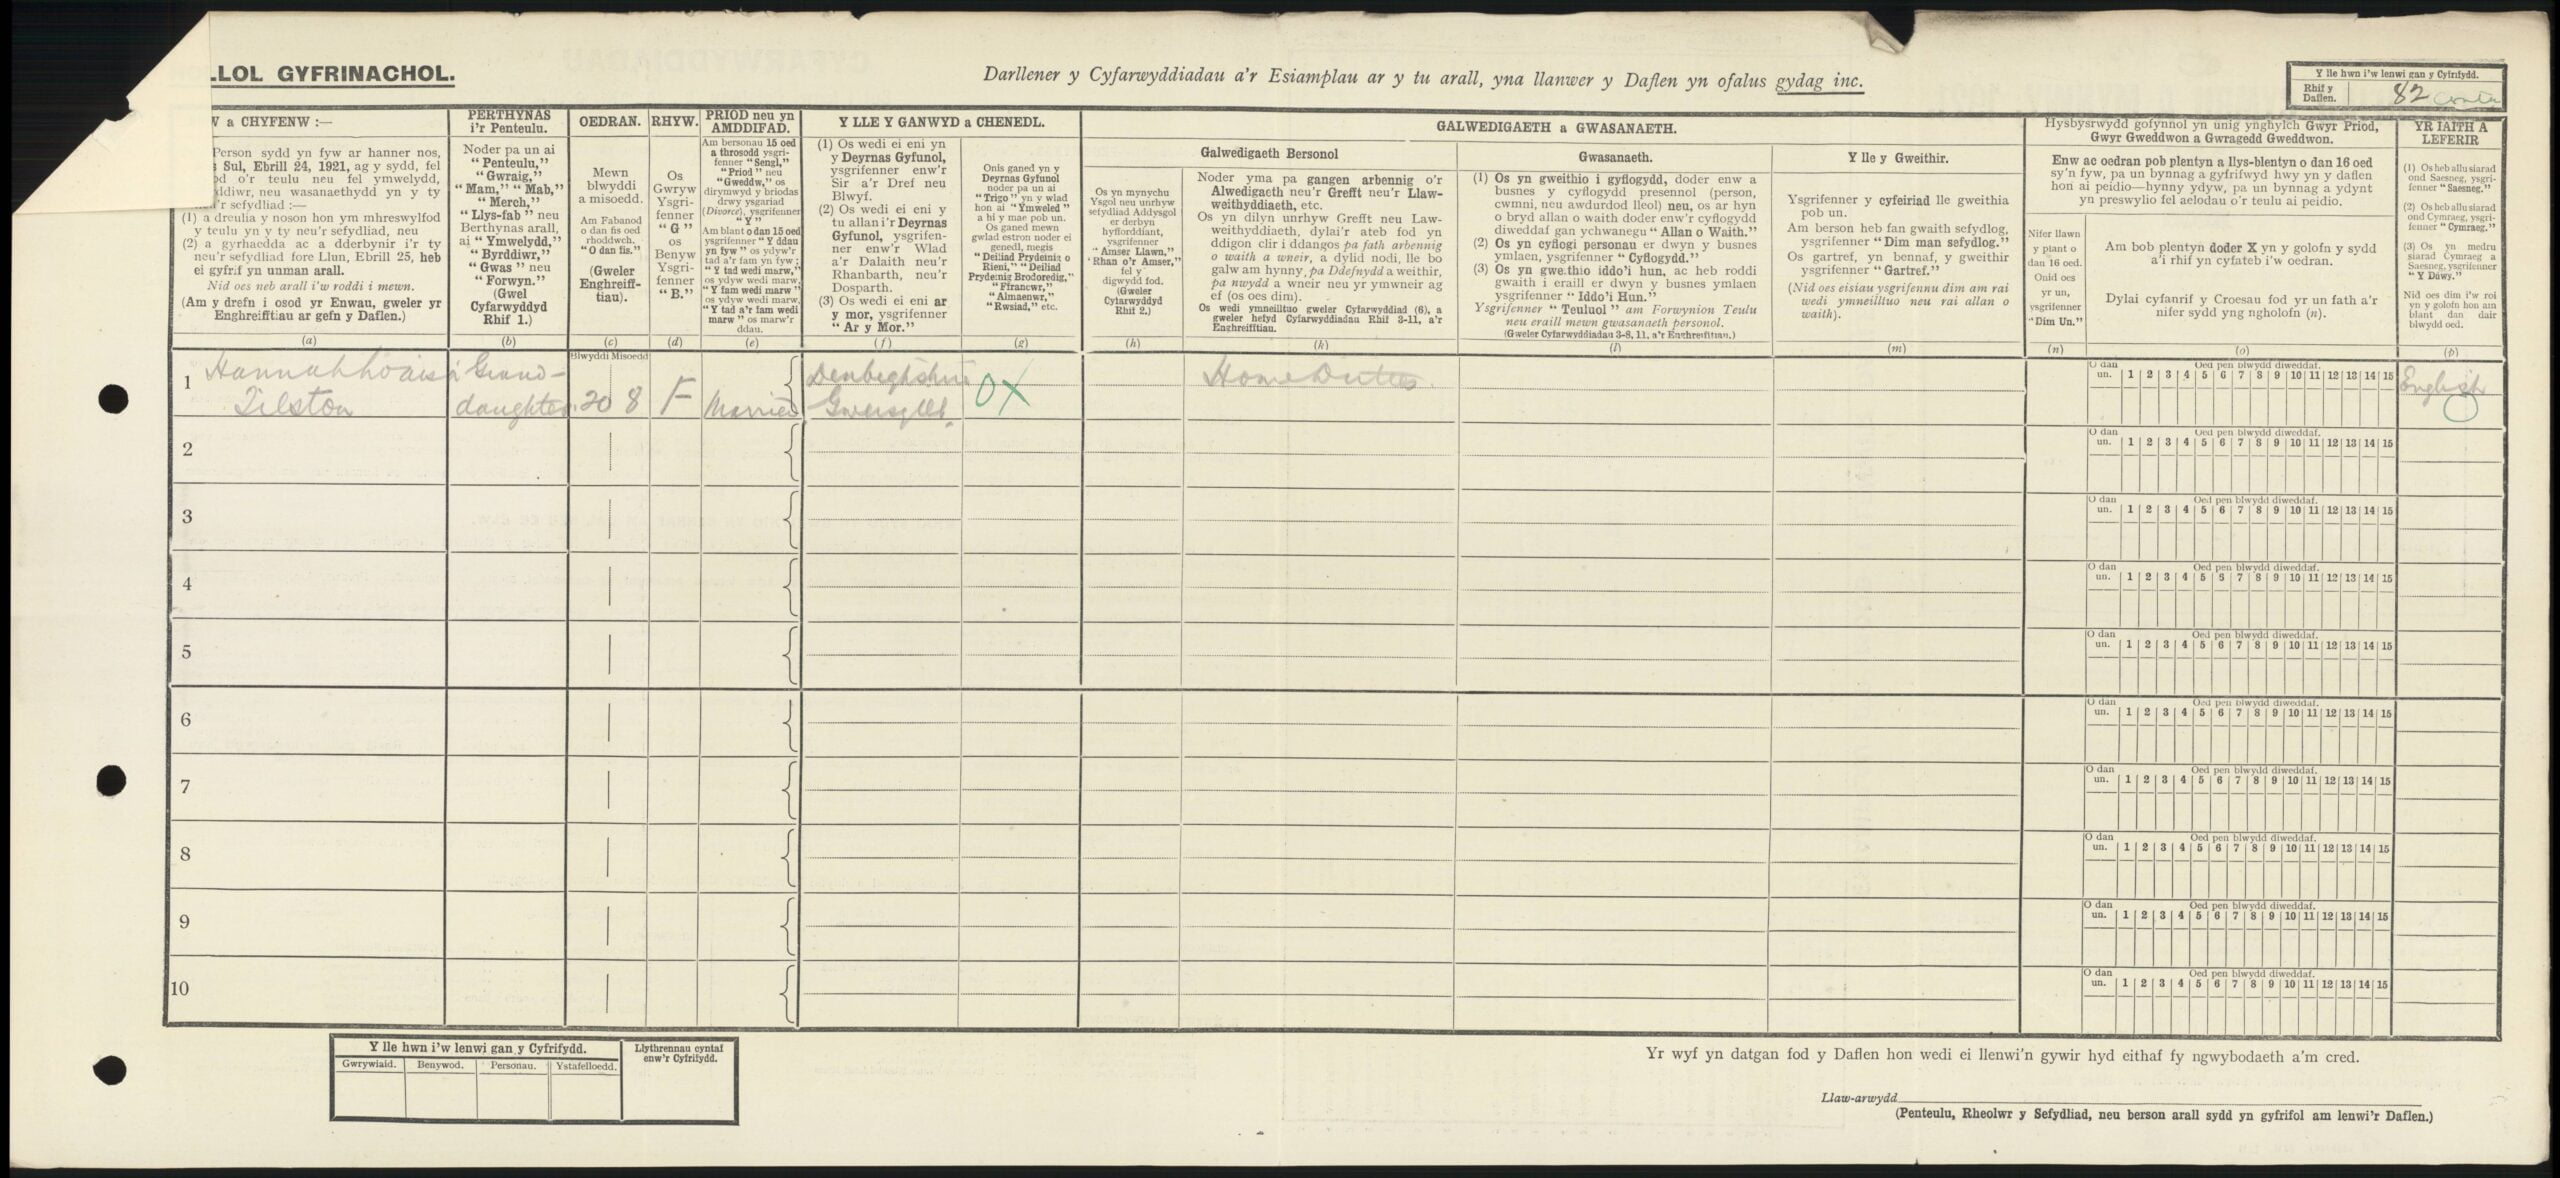 LLOL GYFRINACHOL.
Darllener y Cyfarwyddiadau a'r Esiamplau ar y tu arall, yna llanwer y Daflen yn ofalus gydag inc.
Y lle hwn i'w lenwi gan y Cyfrifydd.
Rhif y Daflen. 82
W a CHYFENW :—
Person sydd yn fyw ar hanner nos,
Sul, Ebrill 24, 1921, ag y sydd, fel
d o'r teulu neu fel ymwelydd,
ddiwr, neu wasanaethydd yn y ty
'r sefydliad :—
(1) a dreulia y noson hon ym mhreswylfod
y teulu yn y ty neu'r sefydliad, neu
(2) a gyrhaedda ac a dderbynir i'r ty
neu'r sefydliad fore Llun, Ebrill 25, heb
ei gyfrif yn unman arall.
Nid oes neb arall i'w roddi i mewn.
(Am y drefn i osod yr Enwau, gweler yr
Enghreifftiau ar gefn y Daflen.)
(a)
PERTHYNAS
i'r Penteulu.
Noder pa un ai
"Penteulu,"
"Gwraig,"
"Mam," "Mab,"
"Merch,"
"Llys-fab" neu
Berthynas arall,
ai "Ymwelydd,"
"Byrddiwr,"
"Gwas" neu
"Forwyn."
(Gwel
Cyfarwyddyd
Rhif 1.)
(b)
OEDRAN.
Mewn
blwyddi
a misoedd.
Am Fabanod
o dan fis oed
rhoddwch.
"O dan fis."
(Gweler
Enghreiff-
tiau).
(c)
RHYW.
Os
Gwryw
Ysgri-
fenner
"G"
os
Benyw
Ysgri-
fenner
"B."
(d)
PRIOD neu yn
AMDDIFAD.
Am bersonau 15 oed
a throsodd ysgri-
fenner "Sengl,"
"Priod" neu
"Gweddw," os
dirymwyd y briodas
drwy ysgariad
(Divorce), ysgrifenner
"Y"
Am blant o dan 15 oed
ysgrifenner "Y ddau
yn fyw" os ydyw'r
tad a'r fam yn fyw;
"Y tad wedi marw,"
os ydyw wedi marw,
"Y fam wedi marw"
os ydyw wedi marw,
"Y tad a'r fam wedi
marw" os marw'r
ddau.
(e)
Y LLE Y GANWYD a CHENEDL.
(1) Os wedi ei eni yn
y Deyrnas Gyfunol,
ysgrifenner enw'r
Sir a'r Dref neu
Blwyf.
(2) Os wedi ei eni y
tu allan i'r Deyrnas
Gyfunol, ysgrifen-
ner enw'r Wlad
a'r Dalaith neu'r
Rhanbarth, neu'r
Dosparth.
(3) Os wedi ei eni ar
y mor, ysgrifenner
"Ar y Mor."
(f)
Onis ganed yn y
Deyrnas Gyfunol
noder pa un ai
"Trigo" yn y wlad
hon ai "Ymweled"
a hi y mae pob un.
Os ganed mewn
gwlad estron noder ei
genedl, megis
"Deiliad Prydeinig o
Rieni," "Deiliad
Prydeinig Brodoredig,"
"Ffrancwr,"
"Almaenwr,"
"Rwsiad," etc.
(g)
GALWEDIGAETH a GWASANAETH.
Galwedigaeth Bersonol
Os yn mynychu
Ysgol neu unrhyw
sefydliad Addysgol
er derbyn
hyfforddiant,
ysgrifenner
"Amser Llawn,"
"Rhan o'r Amser,"
fel y
digwydd fod.
(Gweler
Cyfarwyddyd
Rhif 2.)
(h)
Noder yma pa gangen arbennig o'r
Alwedigaeth neu'r Grefft neu'r Llaw-
weithyddiaeth, etc.
Os yn dilyn unrhyw Grefft neu Law-
weithyddiaeth, dylai'r ateb fod yn
ddigon clir i ddangos pa fath arbennig
o waith a wneir, a dylid nodi, lle bo
galw am hynny, pa Ddefnydd a weithir,
pa nwydd a wneir neu yr ymwneir ag
ef (os oes dim).
Os wedi ymneilltuo gweler Cyfarwyddiad (6), a
gweler hefyd Cyfarwyddiadau Rhif 3-11, a'r
Enghreifftiau.
(k)
Gwasanaeth.
(1) Os yn gweithio i gyflogydd, doder enw a
busnes y cyflogydd presennol (person,
cwmni, neu awdurdod lleol) neu, os ar hyn
o bryd allan o waith doder enw'r cyflogydd
diweddaf gan ychwanegu "Allan o Waith."
(2) Os yn cyflogi personau er dwyn y busnes
ymlaen, ysgrifenner "Cyflogydd."
(3) Os yn gweithio iddo'i hun, ac heb roddi
gwaith i eraill er dwyn y busnes ymlaen
ysgrifenner "Iddo'i Hun."
Ysgrifenner "Teuluol" am Forwynion Teulu
neu eraill mewn gwasanaeth personol.
(Gweler Cyfarwyddiadau 3-8, 11, a'r Enghreifftiau.)
(l)
Y lle y Gweithir.
Ysgrifenner y cyfeiriad lle gweithia
pob un.
Am berson heb fan gwaith sefydlog,
ysgrifenner "Dim man sefydlog."
Os gartref, yn bennaf, y gweithir
ysgrifenner "Gartref."
(Nid oes eisiau ysgrifennu dim am rai
wedi ymneilltuo neu rai allan o
waith).
(m)
Hysbysrwydd gofynnol yn unig ynghylch Gwyr Priod,
Gwyr Gweddwon a Gwragedd Gweddwon.
Enw ac oedran pob plentyn a llys-blentyn o dan 16 oed
sy'n fyw, pa un bynnag a gyfrifwyd hwy yn y daflen
hon ai peidio—hynny ydyw, pa un bynnag a ydynt
yn preswylio fel aelodau o'r teulu ai peidio.
Nifer llawn
y plant o
dan 16 oed.
Onid oes
yr un,
ysgrifenner
"Dim Un."
(n)
Am bob plentyn doder X yn y golofn y sydd
a'i rhif yn cyfateb i'w oedran.
Dylai cyfanrif y Croesau fod yr un fath a'r
nifer sydd yng ngholofn (n).
(o)
YR IAITH A
LEFERIR
(1) Os heb allu siarad
ond Saesneg, ysgri-
fenner "Saesneg."
(2) Os heb allu siarad
ond Cymraeg, ysgri-
fenner "Cymraeg."
(3) Os yn medru
siarad Cymraeg a
Saesneg, ysgrifenner
"Y Ddwy."
Nid oes dim i'w roi
yn y golofn hon am
blant dan dair
blwydd oed.
(p)
Blwyddi Misoedd
1 Hannah Louisa Grand-
Tilston daughter 20 8 F Married Denbighshire
Gwersyllt OX Home Duties. English
O dan un. Oed pen blwydd diweddaf.
1 2 3 4 5 6 7 8 9 10 11 12 13 14 15
2 O dan un. Oed pen blwydd diweddaf.
1 2 3 4 5 6 7 8 9 10 11 12 13 14 15
3 O dan un. Oed pen blwydd diweddaf.
1 2 3 4 5 6 7 8 9 10 11 12 13 14 15
4 O dan un. Oed pen blwydd diweddaf.
1 2 3 4 5 6 7 8 9 10 11 12 13 14 15
5 O dan un. Oed pen blwydd diweddaf.
1 2 3 4 5 6 7 8 9 10 11 12 13 14 15
6 O dan un. Oed pen blwydd diweddaf.
1 2 3 4 5 6 7 8 9 10 11 12 13 14 15
7 O dan un. Oed pen blwydd diweddaf.
1 2 3 4 5 6 7 8 9 10 11 12 13 14 15
8 O dan un. Oed pen blwydd diweddaf.
1 2 3 4 5 6 7 8 9 10 11 12 13 14 15
9 O dan un. Oed pen blwydd diweddaf.
1 2 3 4 5 6 7 8 9 10 11 12 13 14 15
10 O dan un. Oed pen blwydd diweddaf.
1 2 3 4 5 6 7 8 9 10 11 12 13 14 15
Y lle hwn i'w lenwi gan y Cyfrifydd.
Gwrywiaid. Benywod. Personau. Ystafelloedd.
Llythrennau cyntaf
enw'r Cyfrifydd.
Yr wyf yn datgan fod y Daflen hon wedi ei llenwi'n gywir hyd eithaf fy ngwybodaeth a'm cred.
Llaw-arwydd
(Penteulu, Rheolwr y Sefydliad, neu berson arall sydd yn gyfrifol am lenwi'r Daflen.)